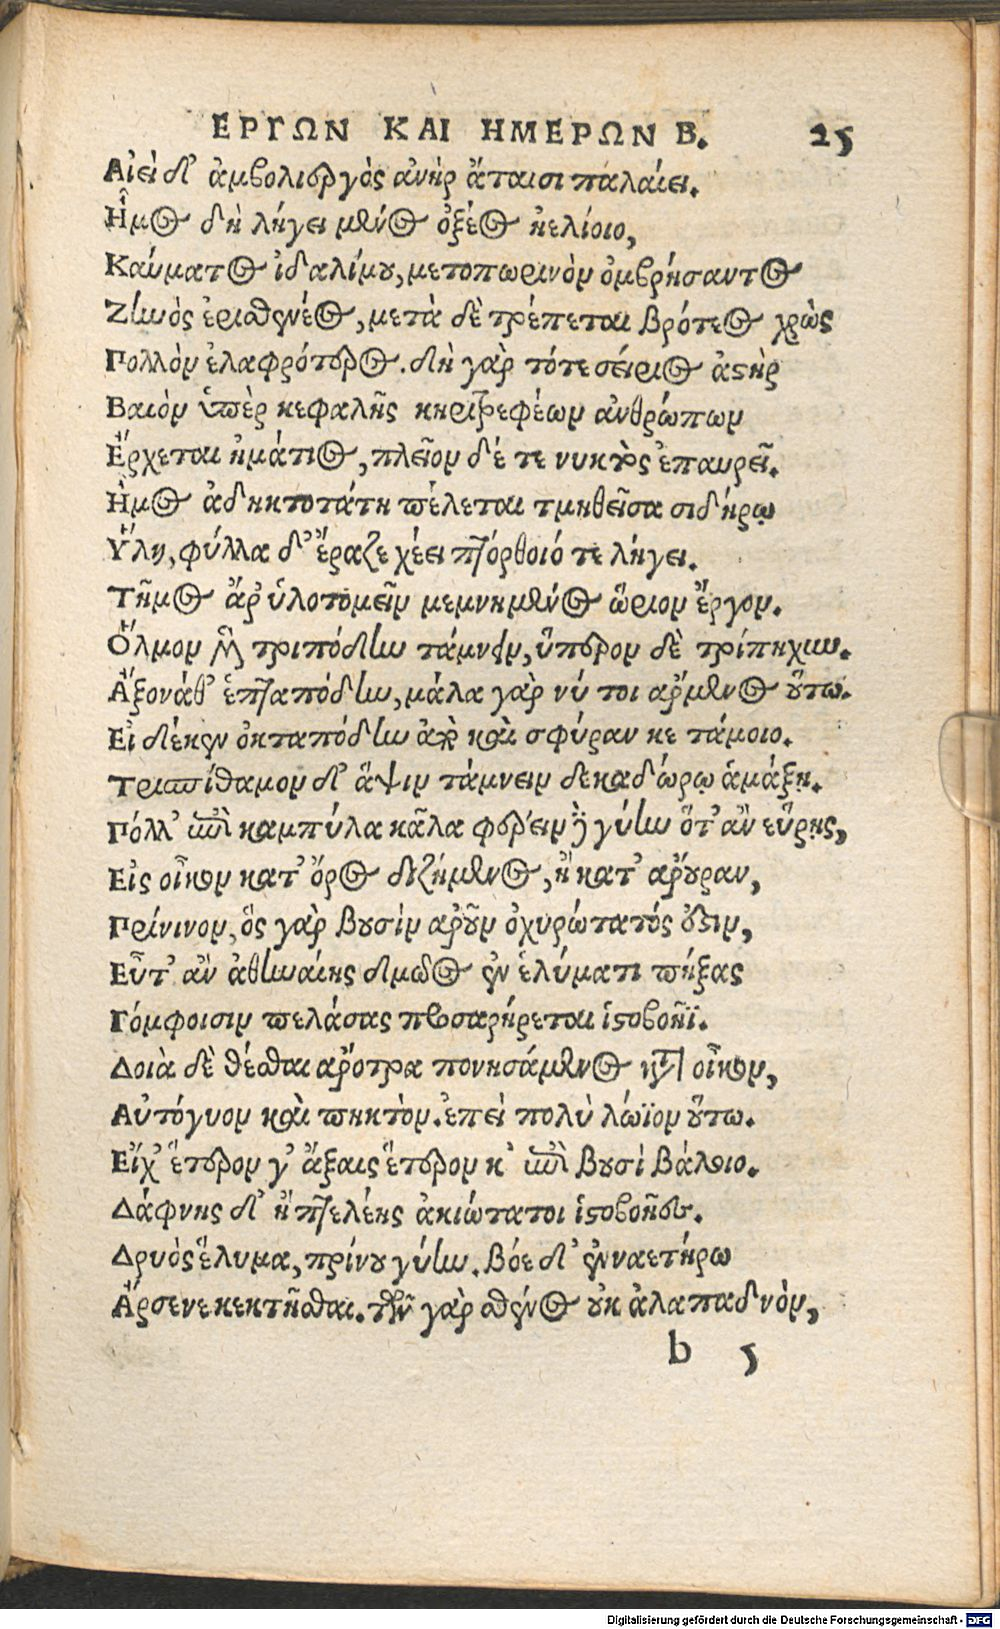 ΕΡΓΩΝ ΚΑΙ ΗΜΕΡΩΝ Β. 25
Αἰεὶ δ' ἀμβολιεργὸς ἀνὴρ ἄταισι παλαίει.
Ἦμος δὴ λήγει μένος ὀξέος ἠελίοιο,
Καύματος ἰδαλίμου, μετοπωρινὸν ὀμβρήσαντος
Ζηνὸς ἐρισθενέος, μετὰ δὲ τρέπεται βρότεος χρὼς
Πολλὸν ἐλαφρότερος. δὴ γὰρ τότε σείριος ἀστὴρ
Βαιὸν ὑπὲρ κεφαλῆς κηριτρεφέων ἀνθρώπων
Ἔρχεται ἠμάτιος, πλεῖον δέ τε νυκτὸς ἐπαυρεῖ.
Ἦμος ἀδηκτοτάτη πέλεται τμηθεῖσα σιδήρῳ
Ὕλη, φύλλα δ' ἔραζε χέει πτόρθοιό τε λήγει.
Τῆμος ἄρ' ὑλοτομεῖν μεμνημένος ὥριον ἔργον.
Ὅλμον μὲν τριπόδην τάμνειν, ὕπερον δὲ τρίπηχυν.
Ἄξονάθ' ἑπταπόδην, μάλα γὰρ νύ τοι ἄρμενος οὕτω.
Εἰ δέκεν ὀκταπόδην ἀπὸ καὶ σφύραν κε τάμοιο.
Τρισπίθαμον δ' ἅψιν τάμνειν δεκαδώρῳ ἁμάξῃ.
Πόλλ' ἐπὶ καμπύλα κᾶλα φέρειν δὲ γύην ὅτ' ἂν εὕρῃς,
Εἰς οἶκον κατ' ὄρος διζήμενος, ἢ κατ' ἄρουραν,
Πρίνινον, ὃς γὰρ βουσὶν ἀροῦν ὀχυρώτατός ἐστιν,
Εὖτ' ἂν ἀθηναίης δμῶος ἐν ἐλύματι πήξας
Γόμφοισιν πελάσας προσαρήρεται ἱστοβοῆϊ.
Δοιὰ δὲ θέσθαι ἄροτρα πονησάμενος κατὰ οἶκον,
Αὐτόγυον καὶ πηκτὸν. ἐπεὶ πολὺ λώϊον οὕτω.
Εἴχ' ἕτερον γ' ἄξαις ἕτερον κ' ἐπὶ βουσὶ βάλοιο.
Δάφνης δ' ἢ πτελέης ἀκιώτατοι ἱστοβοῆες.
Δρυὸς ἔλυμα, πρίνου γύην. βόε δ' ἐνναετήρω
Ἄρσενε κεκτῆσθαι. τῶν γὰρ σθένος οὐκ ἀλαπαδνὸν,
b 5
Digitalisierung gefördert durch die Deutsche Forschungsgemeinschaft - DFG